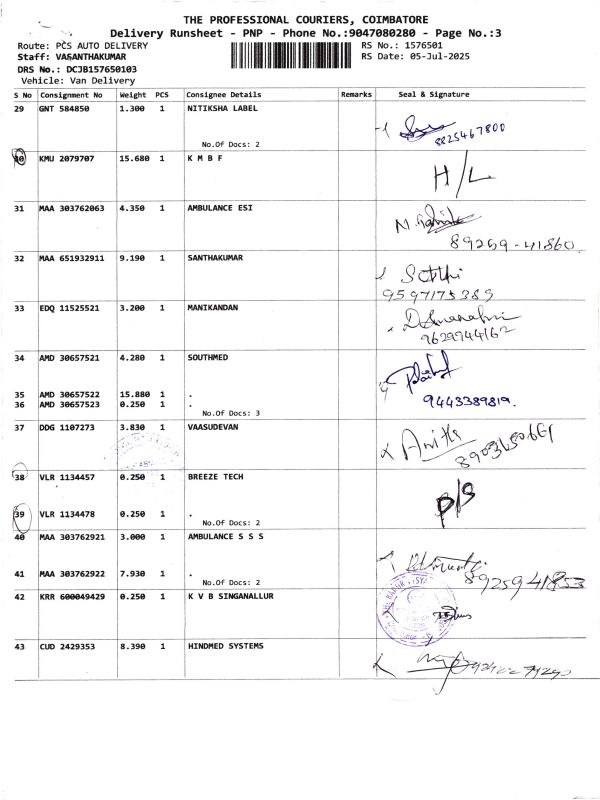 THE PROFESSIONAL COURIERS, COIMBATORE
Delivery Runsheet - PNP - Phone No.:9047080280 - Page No.:3
Route: PCS AUTO DELIVERY
RS No.: 1576501
Staff: VASANTHAKUMAR
RS Date: 05-Jul-2025
DRS No.: DCJB157650103
Vehicle: Van Delivery
S No Consignment No Weight PCS Consignee Details Remarks Seal & Signature
29 GNT 584850 1.300 1 NITIKSHA LABEL
No.Of Docs: 2
8825467800
30 KMU 2079707 15.680 1 K M B F
H/L
31 MAA 303762063 4.350 1 AMBULANCE ESI
89259-41860
32 MAA 651932911 9.190 1 SANTHAKUMAR
9597175389
33 EDQ 11525521 3.200 1 MANIKANDAN
9629944162
34 AMD 30657521 4.280 1 SOUTHMED
35 AMD 30657522 15.880 1 .
36 AMD 30657523 0.250 1 .
No.Of Docs: 3
9443389819.
37 DDG 1107273 3.830 1 VAASUDEVAN
38 VLR 1134457 0.250 1 BREEZE TECH
D/S
39 VLR 1134478 0.250 1 .
No.Of Docs: 2
40 MAA 303762921 3.000 1 AMBULANCE S S S
41 MAA 303762922 7.930 1 .
No.Of Docs: 2
8925941853
42 KRR 600049429 0.250 1 K V B SINGANALLUR
43 CUD 2429353 8.390 1 HINDMED SYSTEMS